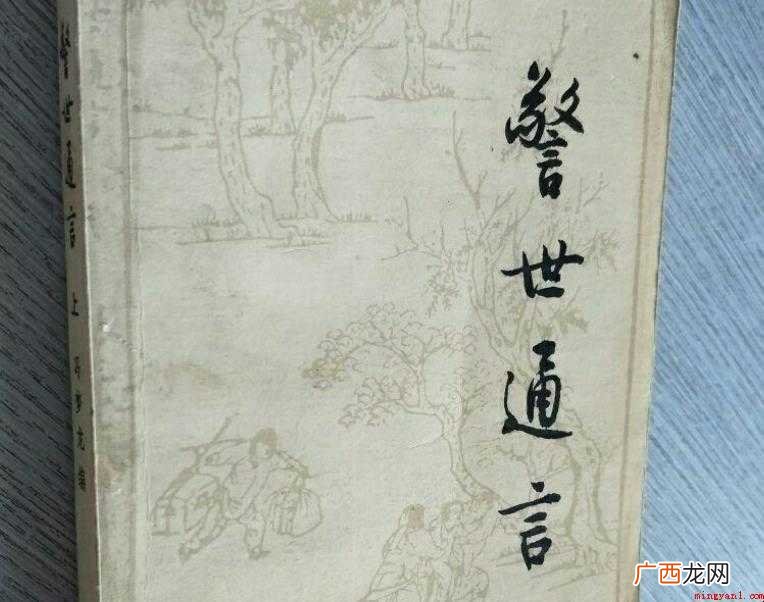 警世通言
警世通言 上 冯梦龙编
广西龙网
mingyan1.com